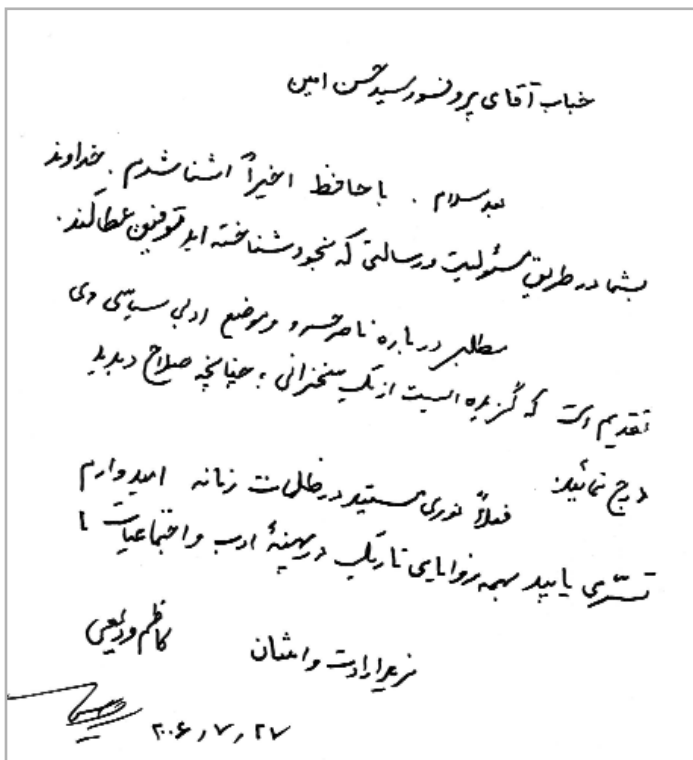 جناب آقای پروفسور سید حسن امین
بعد سلام . با حافظ اخیراً آشنا شدم . خداوند
بشما در طریق مسئولیت و رسالتی که بخود شناخته اید توفیق عطا کند .
مطلبی درباره ناصرخسرو و موضع ادبی سیاسی وی
تقدیم است که گزیده ایست از یک سخنرانی ؛ چنانچه صلاح دیدید
درج نمائید.
فعلاً نوری هستید در ظلمات زمانه امیدوارم
تسرّی یابید بهمه زوایای تاریک در پهنهٔ ادب و اجتماعیات ما
مزید ارادت و امتنان
کاظم ودیعی
۲۰۰۶٫۷٫۲۷